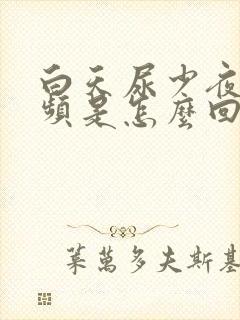 白天尿少夜
頻是怎麼回
萊萬多夫斯基